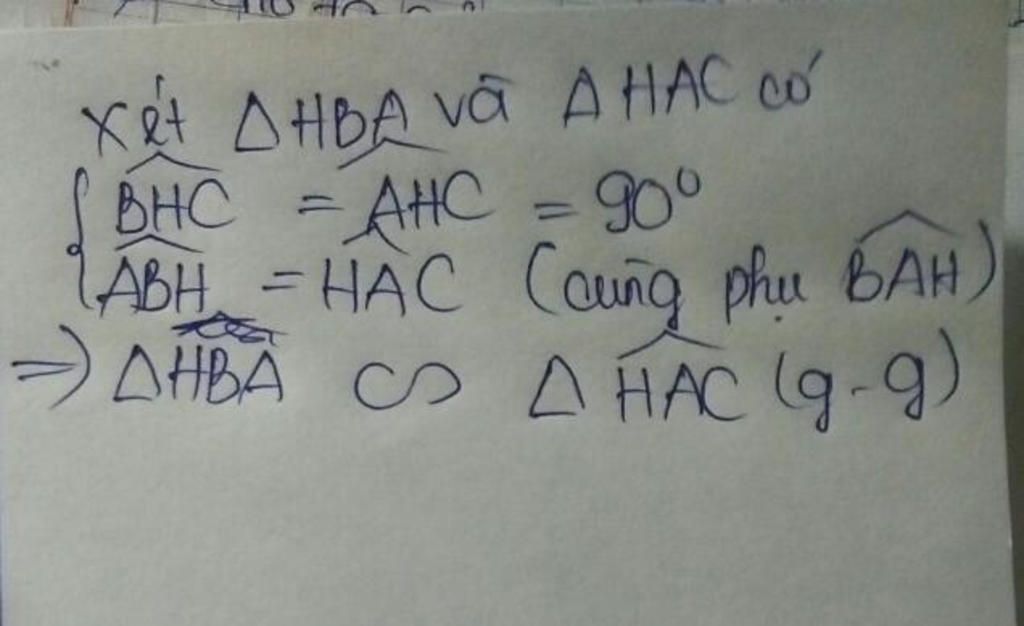 Xét Δ HBA và Δ HAC có
{ \widehat{BHC} = \widehat{AHC} = 90⁰
\widehat{ABH} = \widehat{HAC} (cùng phụ \widehat{BAH})
=> Δ HBA ∽ Δ \widehat{HAC} (g-g)